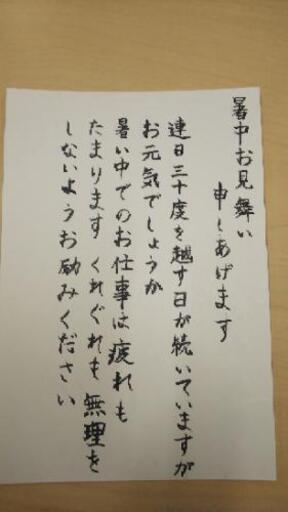 暑中お見舞い
申しあげます
連日三十度を越す日が続いていますが
お元気でしょうか
暑い中でのお仕事は疲れも
たまります くれぐれも無理を
しないようお励みください